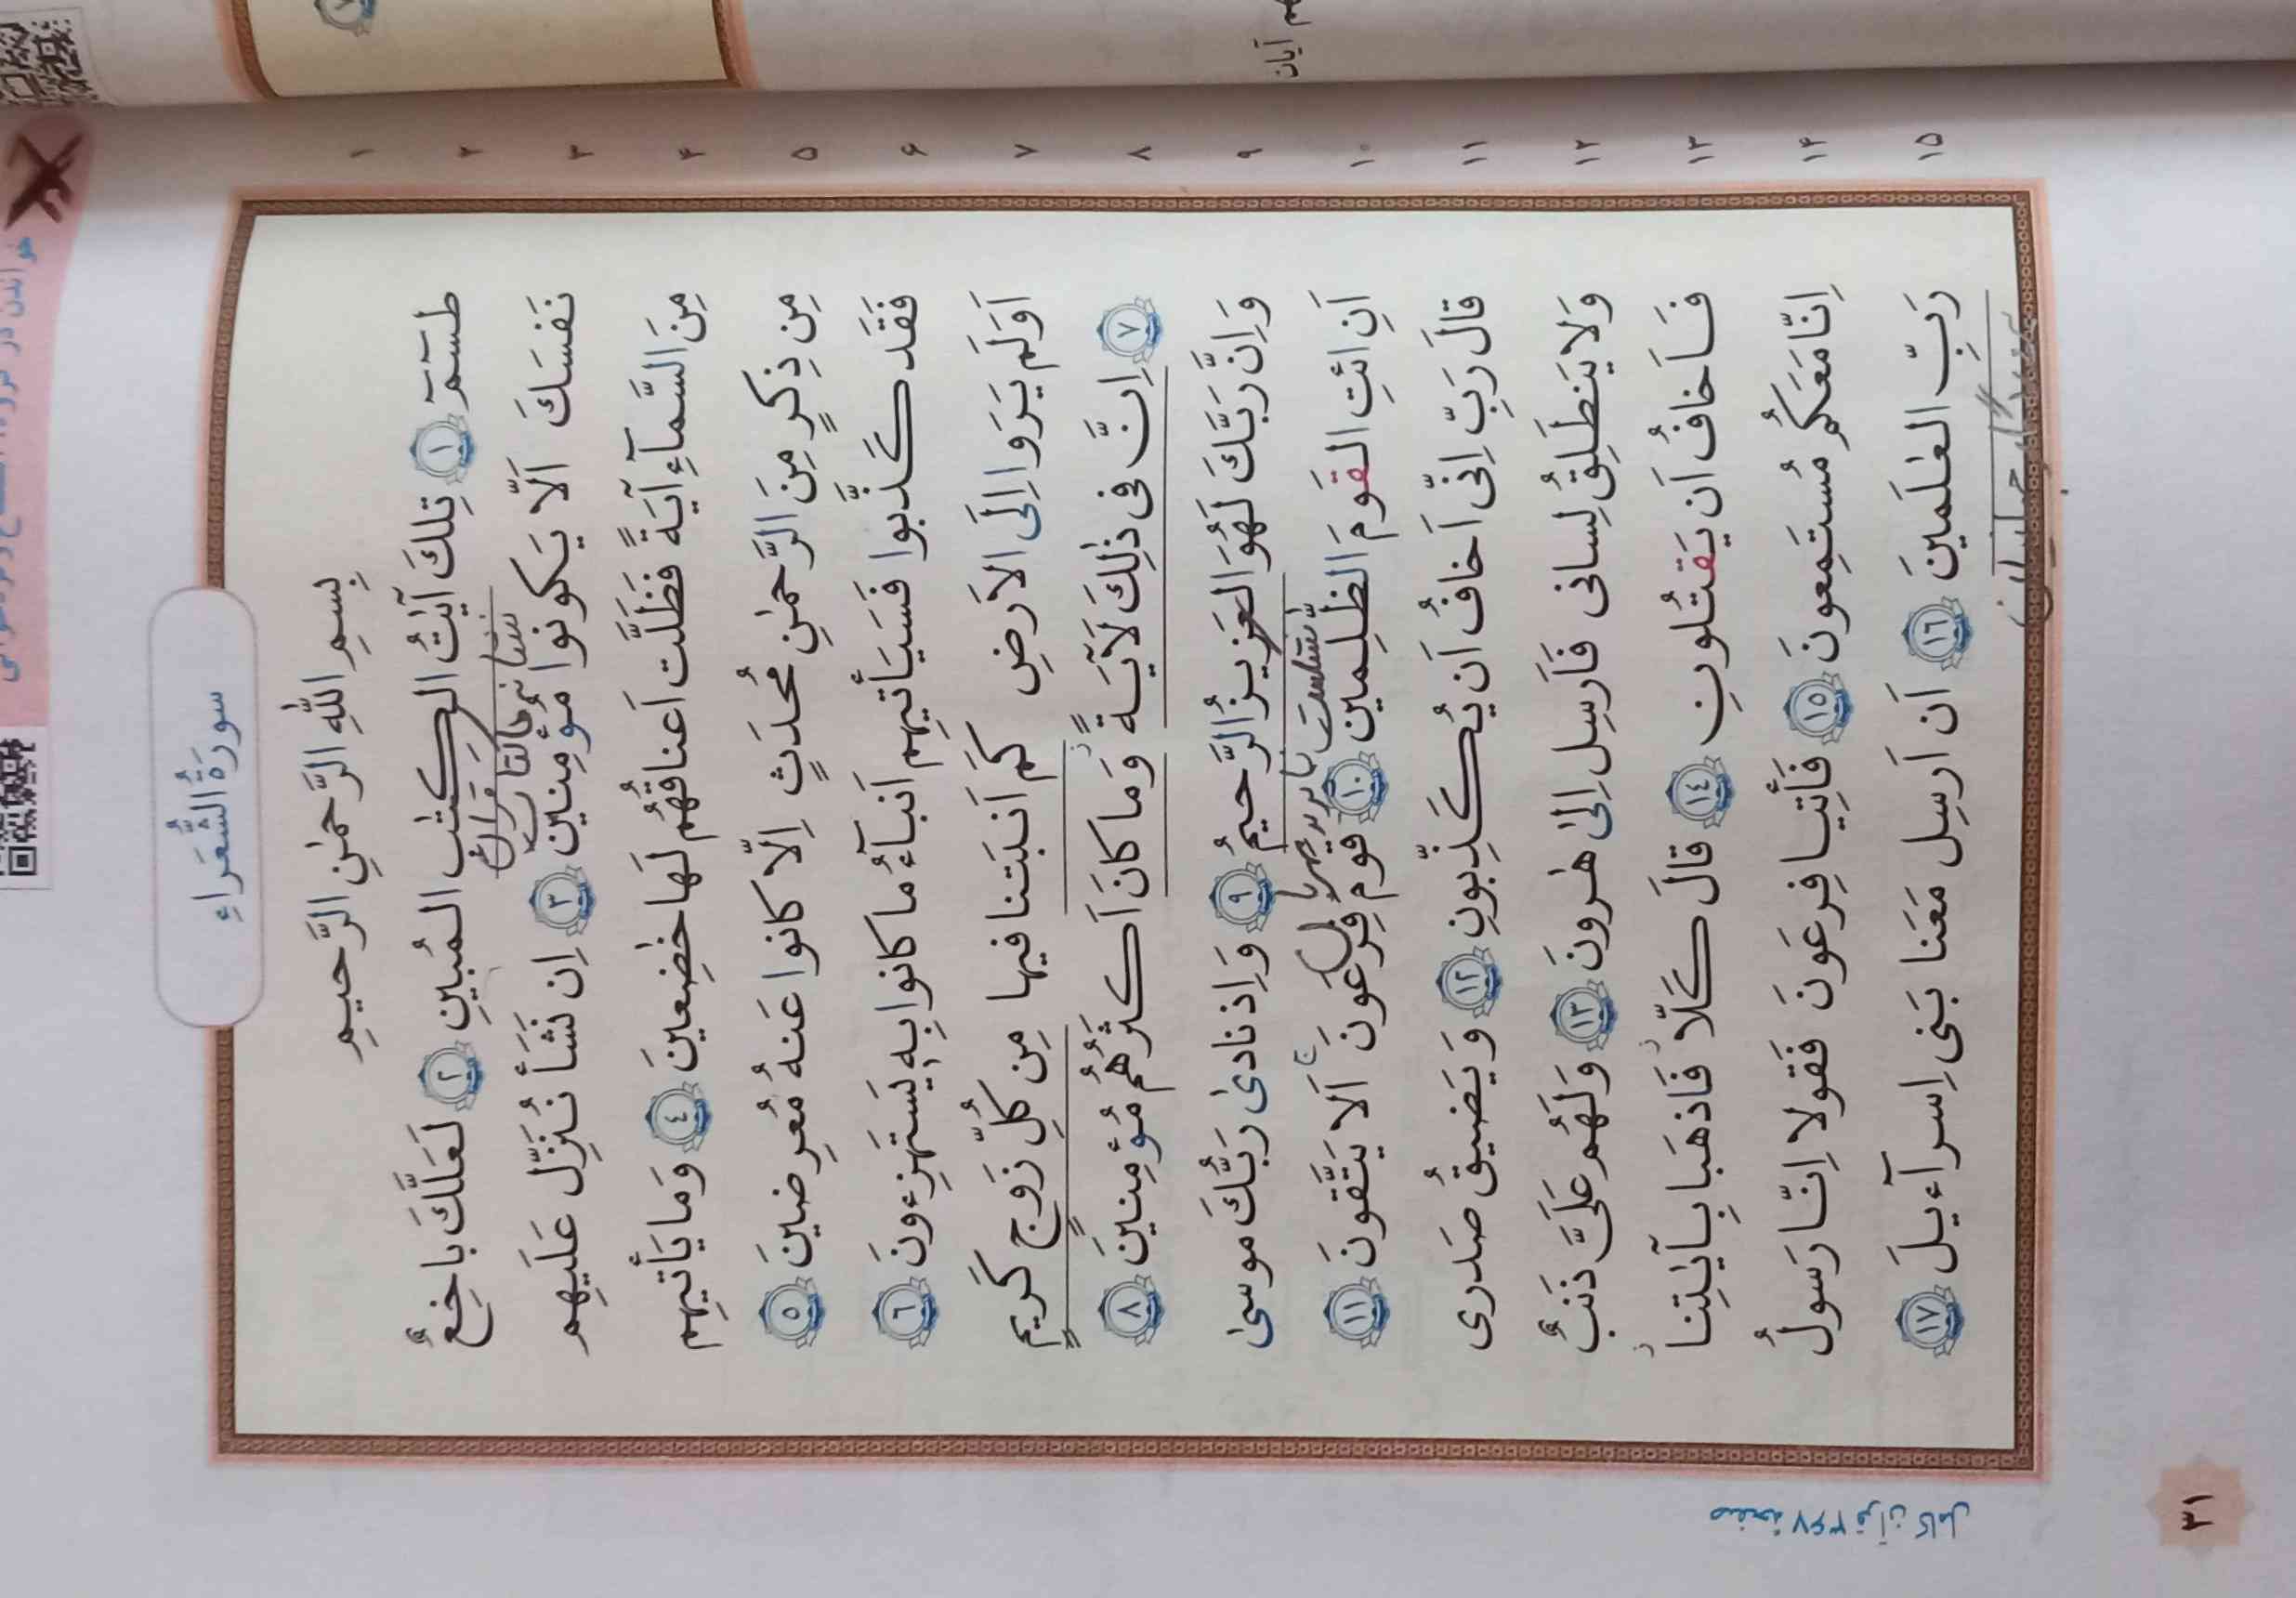 سورَةُ الشُّعَراءِ
بِسمِ اللهِ الرَّحمٰنِ الرَّحيمِ
١ طسٓمٓ ﴿١﴾ تِلكَ آيٰتُ الكِتٰبِ المُبينِ ﴿٢﴾ لَعَلَّكَ باخِعٌ
٢ نَفسَكَ اَلّا يَكونوا مُؤمِنينَ ﴿٣﴾ اِن نَشَأ نُنَزِّل عَلَيهِم
٣ مِنَ السَّمآءِ آيَةً فَظَلَّت اَعناقُهُم لَها خٰضِعينَ ﴿٤﴾ وَما يَأتيهِم
٤ مِن ذِكرٍ مِنَ الرَّحمٰنِ مُحدَثٍ اِلّا كانوا عَنهُ مُعرِضينَ ﴿٥﴾
٥ فَقَد كَذَّبوا فَسَيَأتيهِم اَنبآءُ ما كانوا بِهٖ يَستَهزِءونَ ﴿٦﴾
٦ اَوَلَم يَرَوا اِلَى الاَرضِ كَم اَنبَتنا فيها مِن كُلِّ زَوجٍ كَريمٍ
٧ ﴿٧﴾ اِنَّ فى ذٰلِكَ لَآيَةً وَما كانَ اَكثَرُهُم مُؤمِنينَ ﴿٨﴾
٨ وَاِنَّ رَبَّكَ لَهُوَ العَزيزُ الرَّحيمُ ﴿٩﴾ وَاِذ نادىٰ رَبُّكَ موسىٰ
٩ اَنِ ائتِ القَومَ الظّٰلِمينَ ﴿١٠﴾ قَومَ فِرعَونَ اَلا يَتَّقونَ ﴿١١﴾
١٠ قالَ رَبِّ اِنّى اَخافُ اَن يُكَذِّبونِ ﴿١٢﴾ وَيَضيقُ صَدرى
١١ وَلا يَنطَلِقُ لِسانى فَاَرسِل اِلىٰ هٰرونَ ﴿١٣﴾ وَلَهُم عَلَىَّ ذَنبٌ
١٢ فَاَخافُ اَن يَقتُلونِ ﴿١٤﴾ قالَ كَلّا فَاذهَبا بِآيٰتِنا
١٣ اِنّا مَعَكُم مُستَمِعونَ ﴿١٥﴾ فَأتِيا فِرعَونَ فَقولا اِنّا رَسولُ
١٤ رَبِّ العٰلَمينَ ﴿١٦﴾ اَن اَرسِل مَعَنا بَنى اِسرآءيلَ ﴿١٧﴾
١٥
صفحهٔ ۳۶۷ قرآن کامل
۳۱